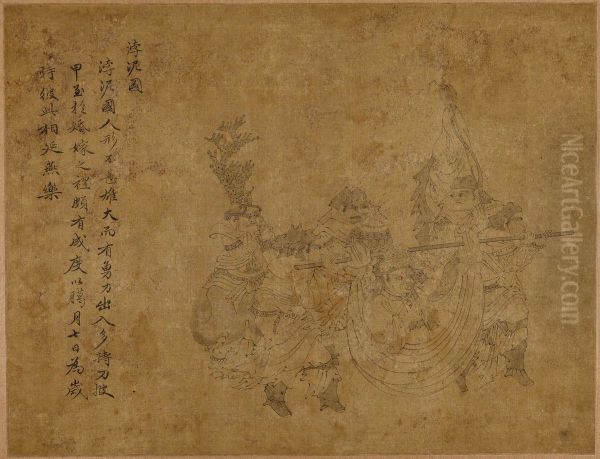 浡泥國
浡泥國人形不甚雄大而有勇力出入多持刀披
甲至於婚嫁之禮頗有咸度以臈月七日為歲
行彼此相延燕樂
NiceArtGallery.com
NiceArtGallery.com